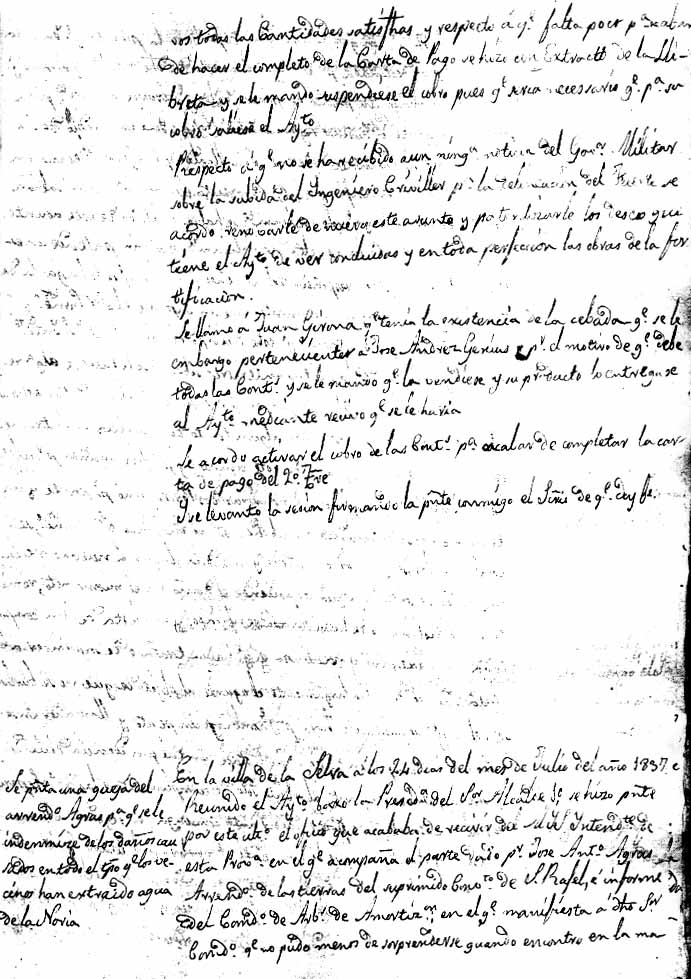 vos todas las Cantidades satisfhas y respecto á q.e falta poco p.a acabar
de hacer el completo de la Carta de Pago se hizo un Extracto de la Lli-
breta y se le mandó suspendiese el cobro pues q.e seria necessario q.e p.a su
cobro saliese el Ayto
Respecto á q.e no se ha recibido aun ning.a noticia del Gov.r Militar
sobre la subida del Ingeniero Criviller p.a la delineacion del Fuerte se
acordó renovarle de nuevo este asunto y patentizarle los deseos que
tiene el Ayto. de ver concluidas y en toda perfeccion las obras de la for
tificacion.
Se llamó á Juan Girona q.e tenia la existencia de la cebada q.e se le
embargó pertenecientes á Jose Andrez p.r el motivo de q.e debe
todas las Cont.s y se le mandó q.e la vendiese y su producto lo entregase
al Ayto. mediante recivo q.e se le haria
Se acordó activar el cobro de las Cont.s p.a acabar de completar la car
ta de pago del 2.o Tre
Y se levantó la sesion firmando la pnte conmigo el Srio de q.e doy fe.
Se pnta una queja del
arrend.o Agras p.a q.e se le
indemnize de los daños cau
sados en todo el tpo q.e los ve-
cinos han extraido agua
de la Noria
En la villa de la Selva á los 24 dias del mes de Julio del año 1837
Reunido el Ayto. baxo la Presid.a del S.or Alcalde 1.o se hizo pnte
por este ult.o el oficio que acababa de recivir del M.Y.S. Intend.te de
esta Prov.a en el q.e acompaña el parte dado p.r Jose Ant.o Agras
Arrend.o de las tierras del suprimido Conv.to de S. Rafel, é informe
del Comd.o de Arb.s de Amortiz.on en el q.e manifiesta á dho S.or
Comd.o q.e no pudo menos de sorprenderse quando encontró en la ma-